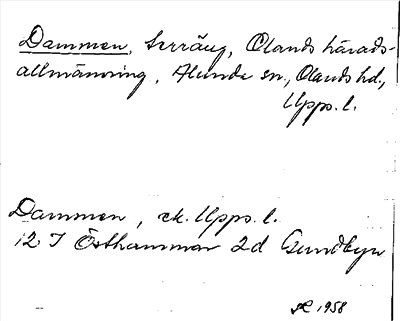 Dammen, terräng, Olands härads-
allmänning, Alunda sn., Olands hd.,
Upps. l.
Dammen, ek. Upps. l.
12 I Östhammar 2d Sundbyn
1958